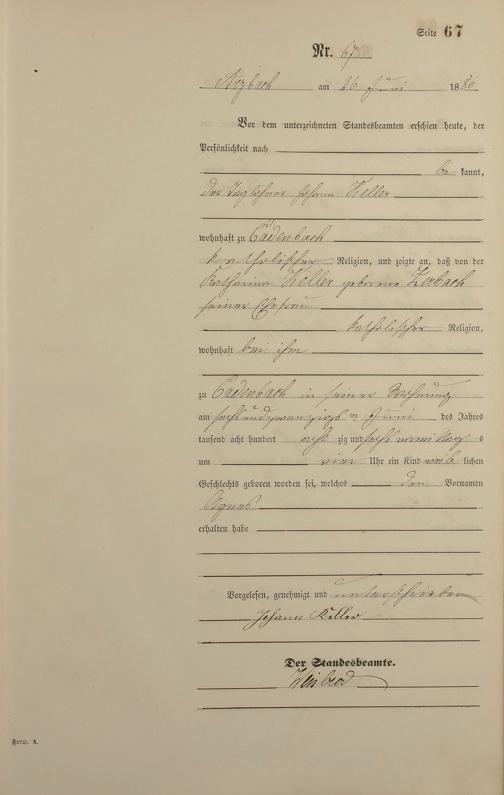 Seite 67
Nr. 67
Arzbach am 26 Juni 1886
Vor dem unterzeichneten Standesbeamten erschien heute, der
Persönlichkeit nach
be kannt,
der Taglöhner Johann Keller
wohnhaft zu Cadenbach
katholischer Religion, und zeigte an, daß von der
Katharina Keller geborene Zerbach
seiner Ehefrau
katholischer Religion,
wohnhaft bei ihm
zu Cadenbach in seiner Wohnung
am sechsundzwanzigsten Juni des Jahres
tausend acht hundert acht zig und sechs vormittag s
um vier Uhr ein Kind weib lichen
Geschlechts geboren worden sei, welches den Vornamen
Agnes
erhalten habe
Vorgelesen, genehmigt und unterschrieben
Johann Keller
Der Standesbeamte.
Form. A.